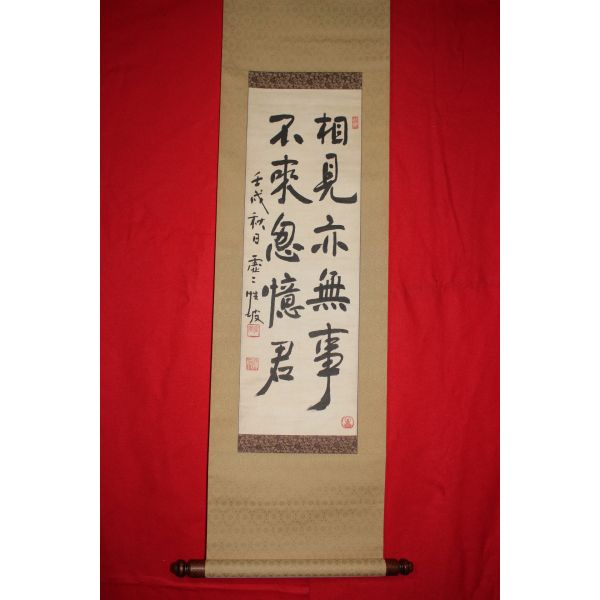 相見亦無事
不來忽憶君
壬戌秋日